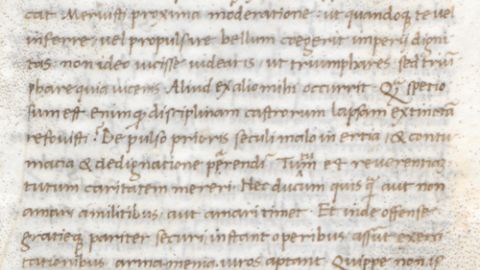 cat Meruisti proxima moderatione: ut quandoq; te vel
inferre: vel propulsare bellum coegerit imperij digni
tas non ideo vicisse videaris: ut triumphares sed triũ
phare quia viceris. Aliud ex alio mihi occurrit. Qȝ spetio
sum est enim q disciplinam castrorum lapsam extinctã
refovisti: De pulso prioris seculi malo in ertia, & contu
matia & dedignatione perendi. Tutũ est reverentiã
tutum caritatem mereri. Nec ducum quis q̃ aut non
amari amilitibus: aut amari timet. Et inde offense
gratieq; pariter securi: instant operibus assũt exerci
tationibus arma menia viros aptant. Quippe non is